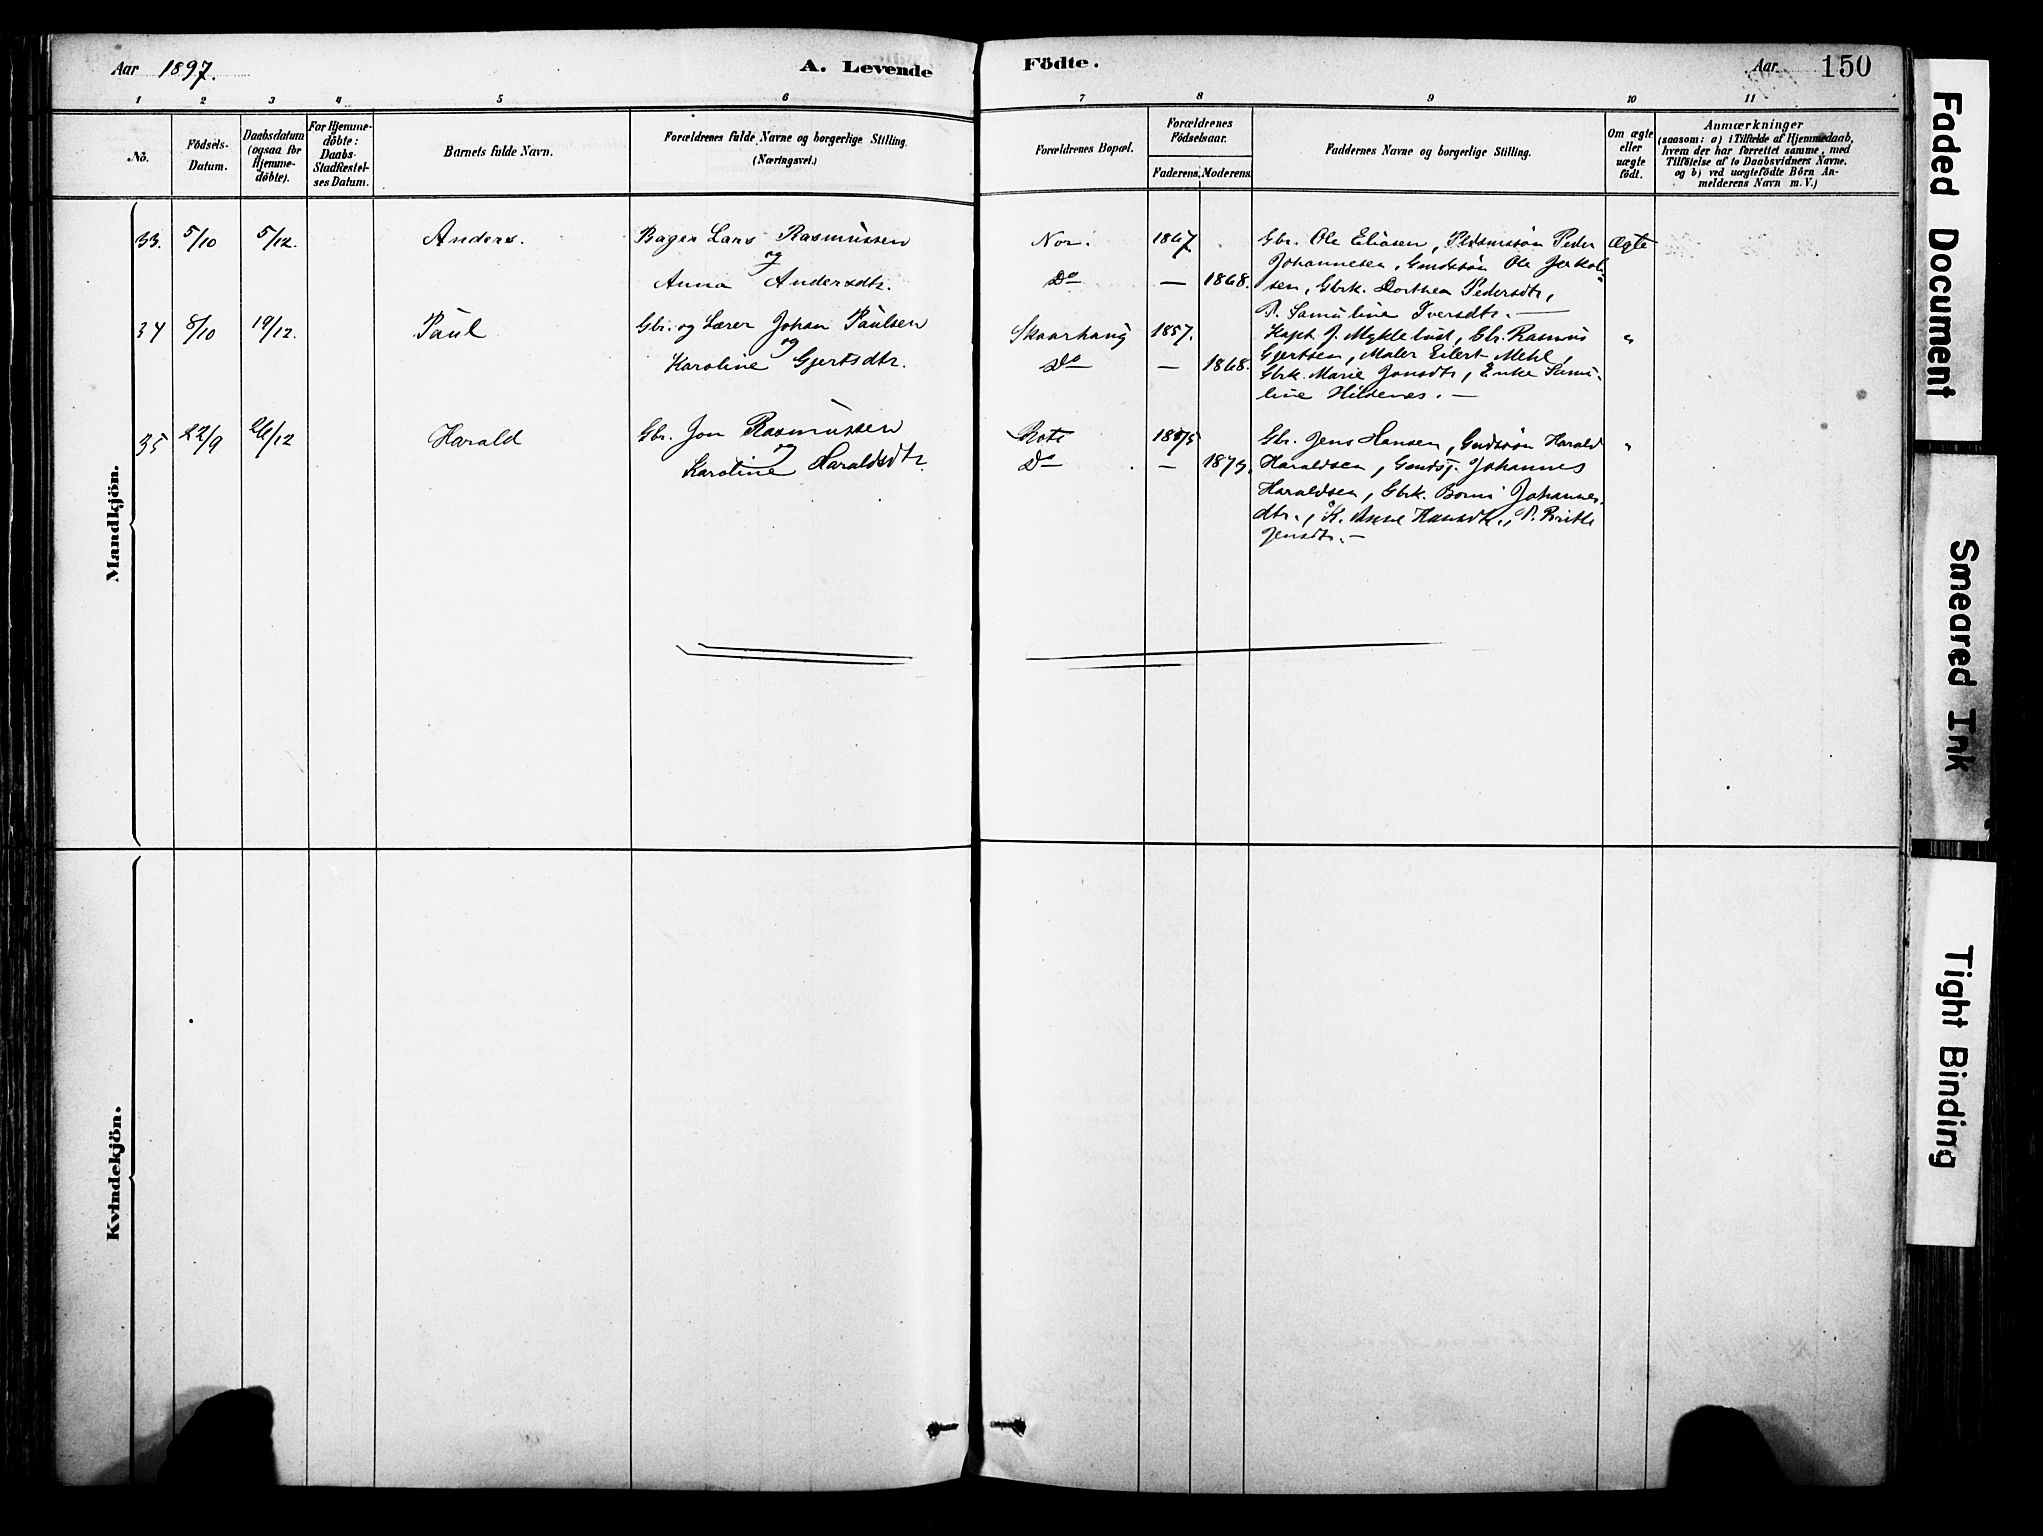 Aar 1897. A. Levende Födte. Aar 150
1 2 3 4 5 6 7 8 9 10 11
Nô. Födsels-Datum. Daabsdatum (ogsaa for Hjemme-döbte). For Hjemme-döbte: Daabs-Stadfæstel-ses Datum. Barnets fulde Navn. Forældrenes fulde Navne og borgerlige Stilling. (Næringsvei.) Forældrenes Bopæl. Forældrenes Födselsaar. Faderens. Moderens. Faddernes Navne og borgerlige Stilling. Om ægte eller uægte födt. Anmærkninger (saasom: a) i Tilfælde af Hjemmedaab, hvem der har forrettet samme, med Tilföielse af to Daabsvidners Navne. og b) ved uægtefödte Börn An-melderens Navn m. V.)
Mandkjön.
33. 5/10 5/12. Anders. Bager Lars Rasmussen Nor. 1867 Gbr. Ole Eliasen, Peder Ægte
og Johannesen, Ole
Anna Andersdtr. Do — 1868. sen, Gbrk. Dorthea Pedersdtr,
P. Samuline Iversdtr. —
34 8/10 19/12. Paul Gbr. og Lærer Johan Paulsen Skaarhaug 1857. Kapt. J. Myklebust, Gbr. Rasmus "
og Gjertsen, Maler Eilert Mehl,
Karoline Gjertsdtr. Do — 1868. Gbrk. Marie Jonsdtr, Enke Samu-
line Hildenes. —
35 22/9 26/12 Harald Gbr. Jon Rasmussen Rote 1875 Gbr. Jens Hansen, Gmdsøn Harald "
og
Karoline Haraldsdtr. Do — 1875. Haraldsen, Gmdsj. Johannes
Haraldsen, Gbrk. Johannes-
dtr., K. Hansdtr., P. Brithe
Jensdtr. —
Kvindekjön.
Faded Document
Smeared Ink
Tight Binding